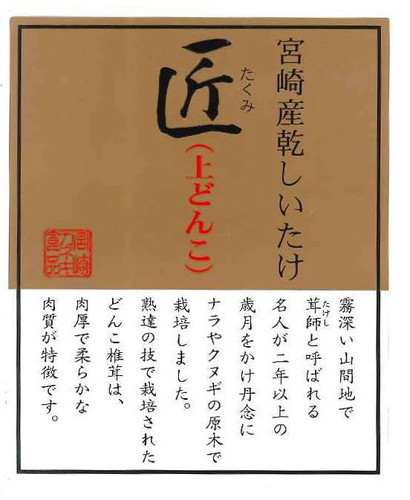 宮崎産乾しいたけ
匠
たくみ
（上どんこ）
霧深い山間地で
茸師と呼ばれる
たけし
名人が二年以上の
歳月をかけ丹念に
ナラやクヌギの原木で
栽培しました。
熟達の技で栽培された
どんこ椎茸は、
肉厚で柔らかな
肉質が特徴です。